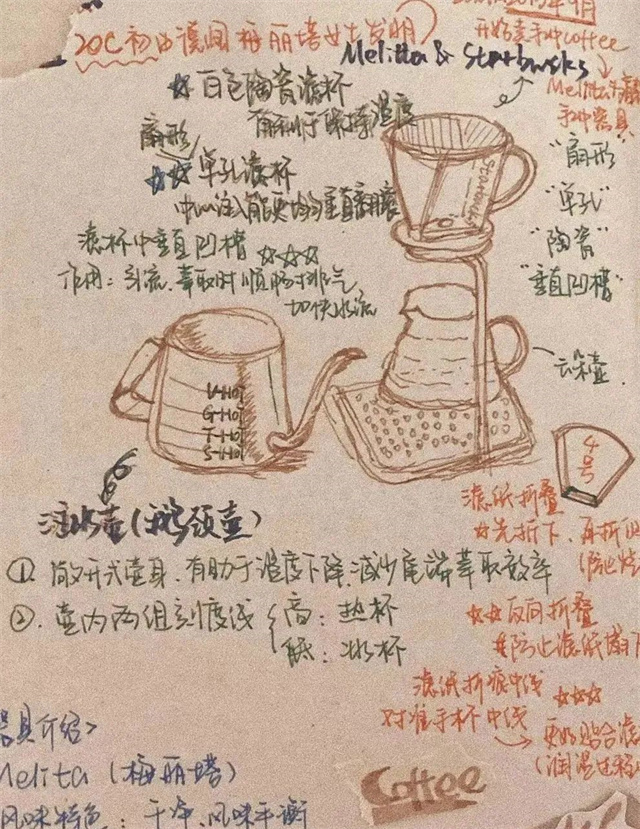 20C初由德国梅丽塔女士发明
开始卖手冲coffee
Melitta & Starbucks
白色陶瓷滤杯
有利于保持温度
手冲器具
扇形
单孔滤杯
中心注入能更均匀垂直
滤杯中垂直凹槽
作用：引流、萃取时顺畅排气
加快水流
"扇形"
"单孔"
"陶瓷"
"垂直凹槽"
云朵壶
4号
注水壶（鹅颈壶）
①. 敞开式壶身，有助于温度下降，减少尾端萃取效率
②. 壶内两组刻度线
高：热杯
低：冰杯
滤纸折叠
先折下、再折
反向折叠
防止滤纸
滤纸折痕中线
对准手杯中线
更好贴合滤
器具介绍>
Melita（梅丽塔）
风味特色：干净、风味平衡
Coffee